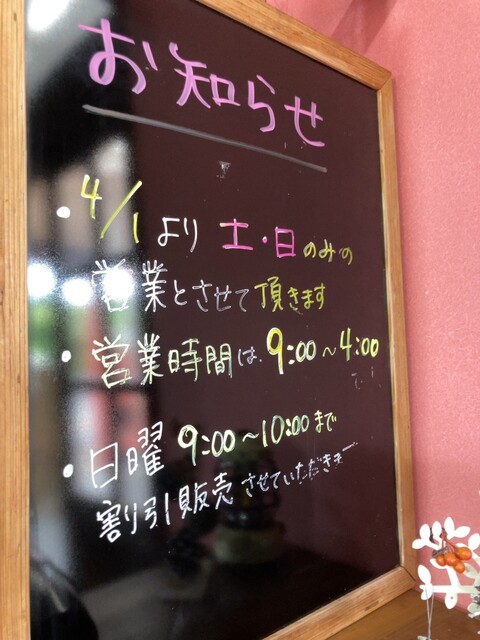 お知らせ
・4/1より土・日のみの
営業とさせて頂きます
・営業時間は 9:00～4:00
・日曜 9:00～10:00まで
割引販売させていただきまー